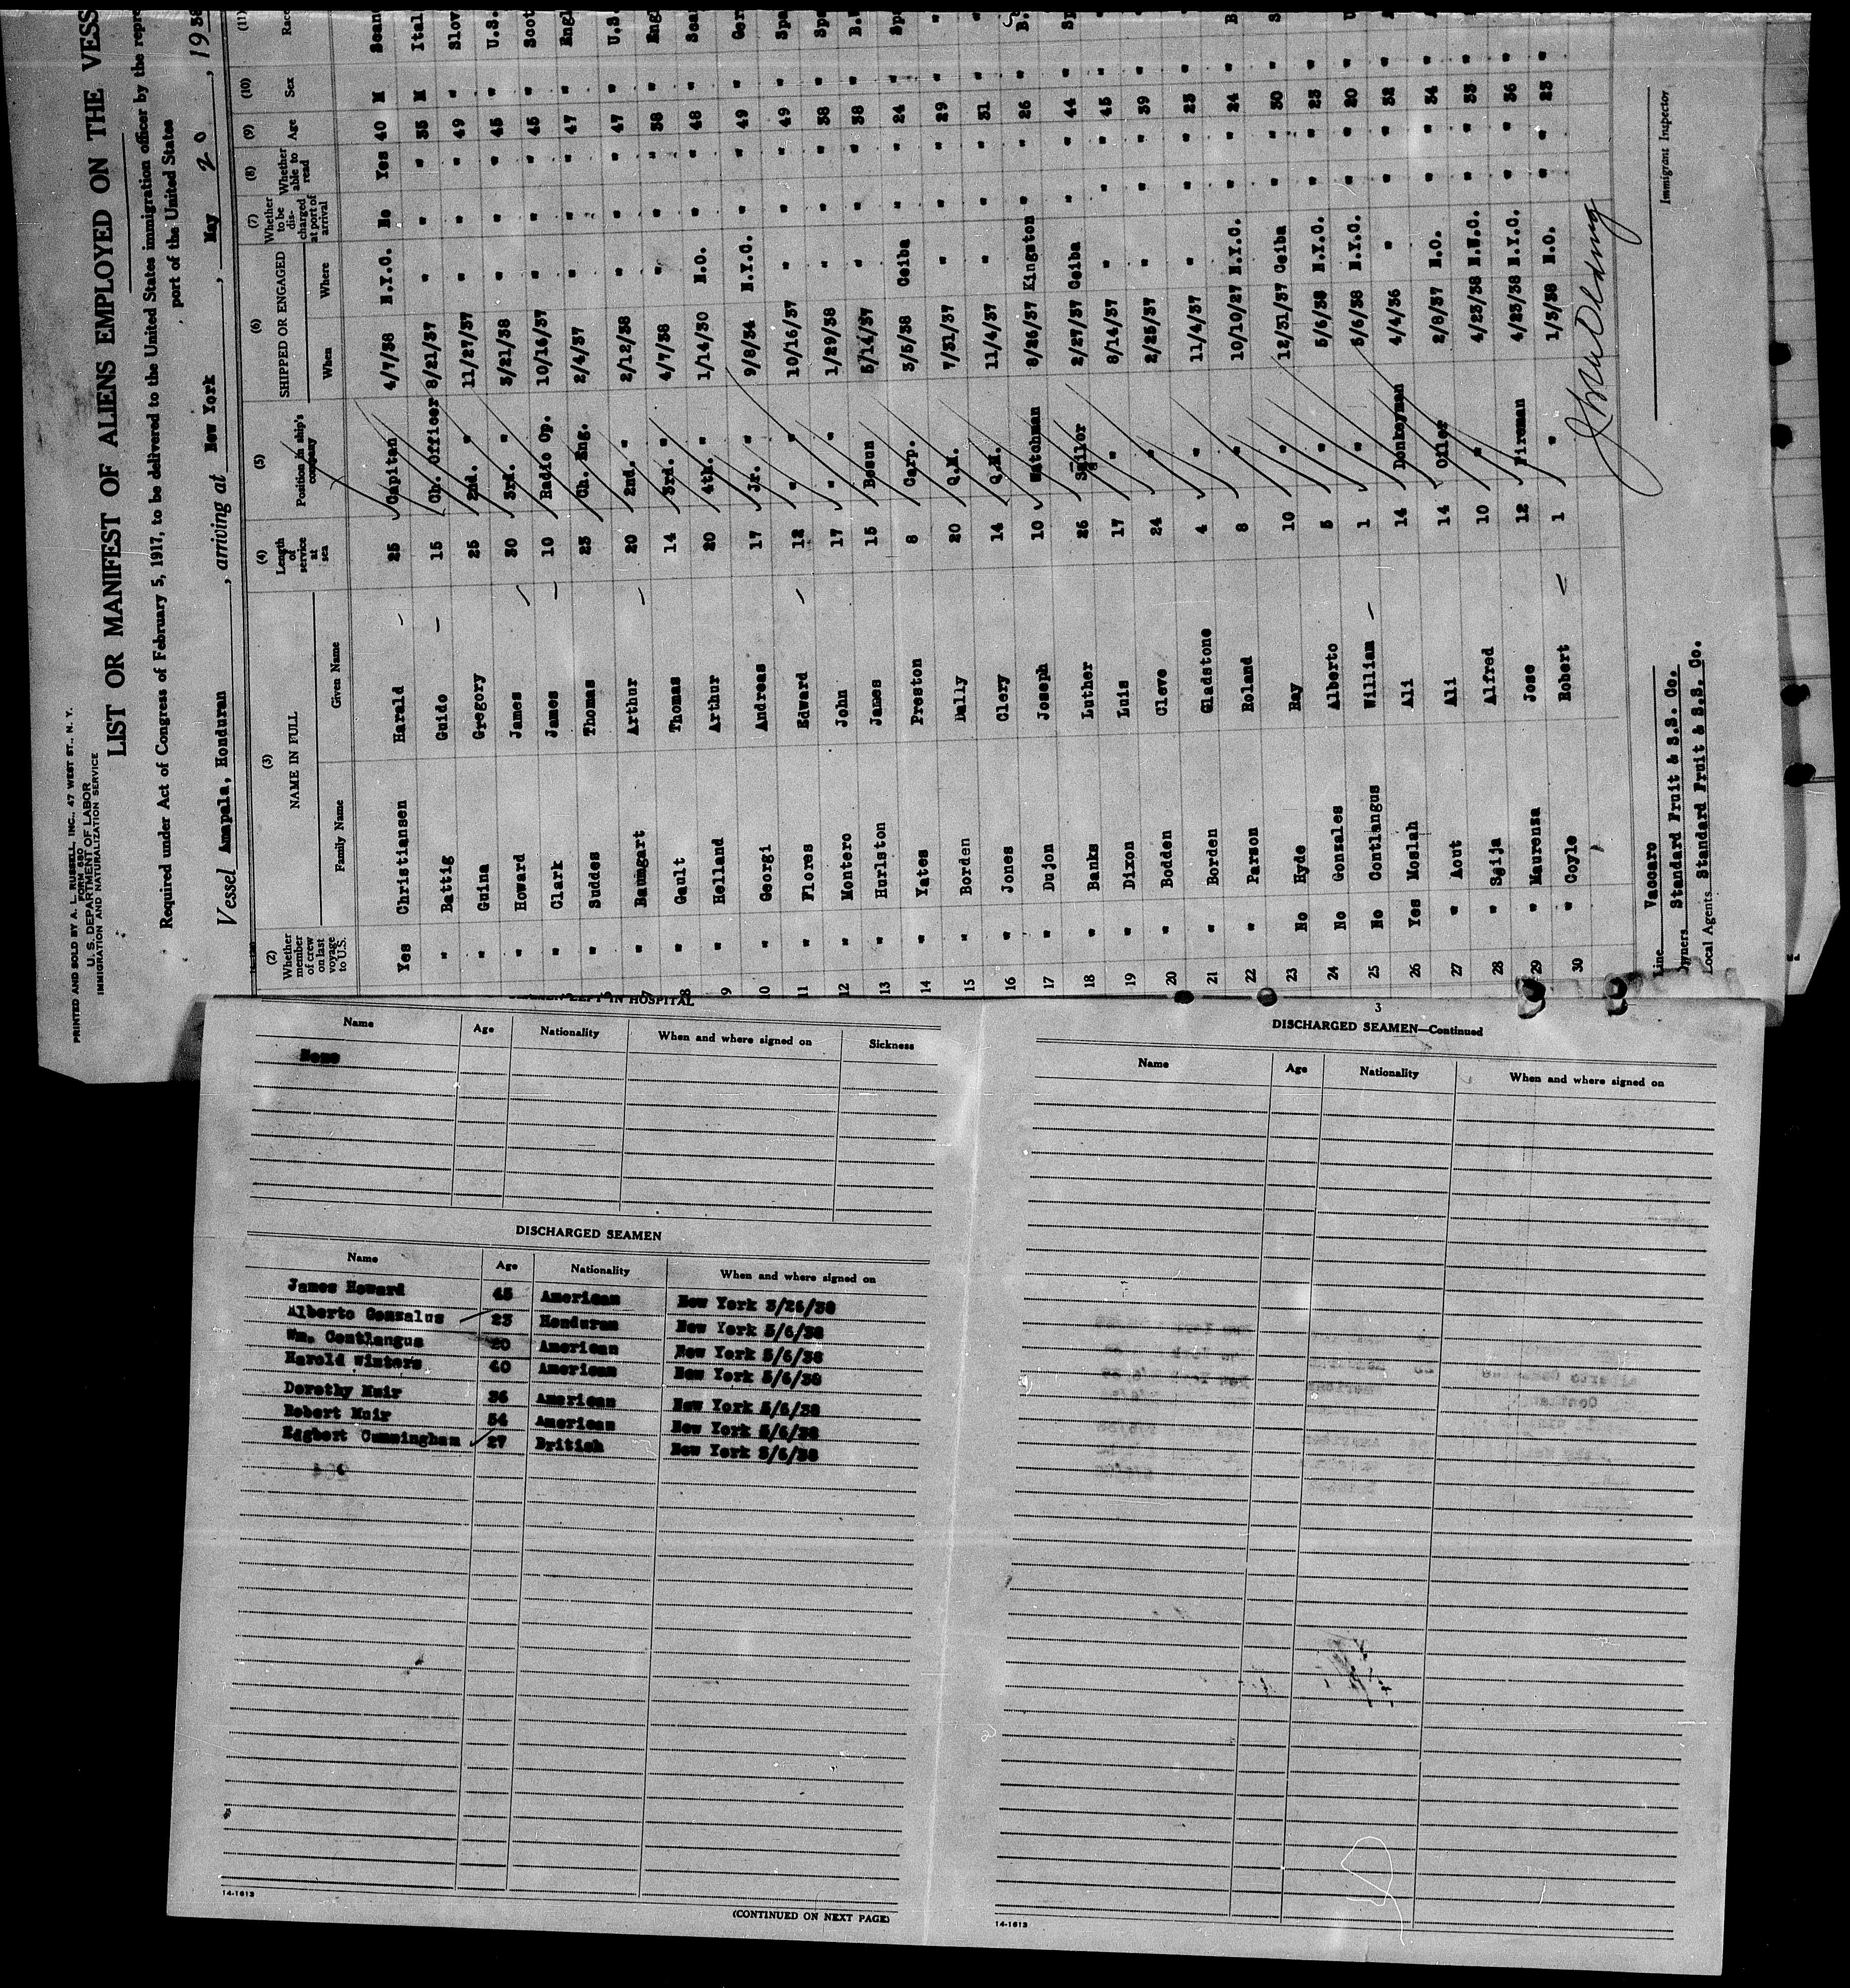 PRINTED AND SOLD BY A. L. RUSSELL, INC., 47 WEST ST., N. Y.
FORM 680
U. S. DEPARTMENT OF LABOR
IMMIGRATION AND NATURALIZATION SERVICE
LIST OR MANIFEST OF ALIENS EMPLOYED ON THE VESS
Required under Act of Congress of February 5, 1917, to be delivered to the United States immigration officer by the repre
port of the United States
Vessel Amapala, Honduran, arriving at New York, May 20, 1938
(2) (3) (4) (5) (6) (7) (8) (9) (10) (11)
Whether member of crew on last voyage to U.S. NAME IN FULL Length of service at sea Position in ship's company SHIPPED OR ENGAGED Whether to be discharged at port of arrival Whether able to read Age Sex Race
Family Name Given Name When Where
Yes Christiansen Harald 25 Capitan 4/7/38 N.Y.C. No Yes 40 M Scan
" Battig Guido 15 Ch. Officer 8/21/37 " " " 35 M Ital
" Guina Gregory 25 2nd. " 11/27/37 " " " 49 " Slov
" Howard James 30 3rd. " 3/21/38 " " " 45 " U.S.
" Clark James 10 Radio Op. 10/16/37 " " " 45 " Scot
" Suddes Thomas 23 Ch. Eng. 2/4/37 " " " 47 " Engl
7 " Baumgart Arthur 20 2nd. " 2/12/38 " " " 47 " U.S.
8 " Gault Thomas 14 3rd. " 4/7/38 " " " 38 " Eng
9 " Helland Arthur 20 4th. " 1/14/30 N.O. " " 48 " Scan
10 " Georgi Andreas 17 Jr. " 9/8/34 N.Y.C. " " 49 " Ger
11 " Flores Edward 12 " 10/16/37 " " " 49 " Spa
12 " Montero John 17 " " 1/29/38 " " " 38 " Spa
13 " Hurlston James 15 Bosun 5/14/37 " " " 38 " B.
14 " Yates Preston 8 Carp. 3/5/38 Ceiba " " 24 " Sp
15 " Borden Dally 20 Q.M. 7/31/37 " " " 29 " "
16 " Jones Clery 14 Q.M. 11/4/37 " " " 31 " "
17 " Dujon Joseph 10 Watchman 8/26/37 Kingston " " 26 " B.
18 " Banks Luther 26 Sailor 2/27/37 Ceiba " " 44 " Sp
19 " Dixon Luis 17 " 8/14/37 " " " 45 "
20 " Bodden Cleve 24 " 2/25/37 " " " 39 "
21 " Borden Gladstone 4 " 11/4/37 " " " 23 "
22 " Parson Roland 8 " 10/10/27 N.Y.C. " " 24 " B
23 No Hyde Ray 10 " 12/31/37 Ceiba " " 30 " S
24 No Gonzales Alberto 5 " 5/6/38 N.Y.C. " " 23 "
25 No Contlangus William 1 " 5/6/38 N.Y.C. " " 20 " U
26 Yes Moslah Ali 14 Donkeyman 4/4/36 " " " 32 "
27 " Aout Ali 14 Oiler 2/8/37 N.O. " " 34 "
28 " Seija Alfred 10 " 4/23/38 N.Y.C. " " 33 "
29 " Maurenza Jose 12 Fireman 4/23/38 N.Y.C. " " 36 "
30 " Coyle Robert 1 " 1/3/38 N.O. " " 23 "
Line Vaccaro
Owners Standard Fruit & S.S. Co.
Local Agents Standard Fruit & S.S. Co.
Immigrant Inspector
LEFT IN HOSPITAL
Name Age Nationality When and where signed on Sickness
None
DISCHARGED SEAMEN
Name Age Nationality When and where signed on
James Howard 45 American New York 3/26/38
Alberto Gonzalus 23 Honduran New York 5/6/38
Wm. Contlangus 20 American New York 5/6/38
Harold Winters 40 American New York 5/6/38
Dorothy Muir 36 American New York 5/6/38
Robert Muir 54 American New York 5/6/38
Edgbert Cunningham 27 British New York 5/6/38
14-1613
(CONTINUED ON NEXT PAGE)
3
DISCHARGED SEAMEN—Continued
Name Age Nationality When and where signed on
14-1613